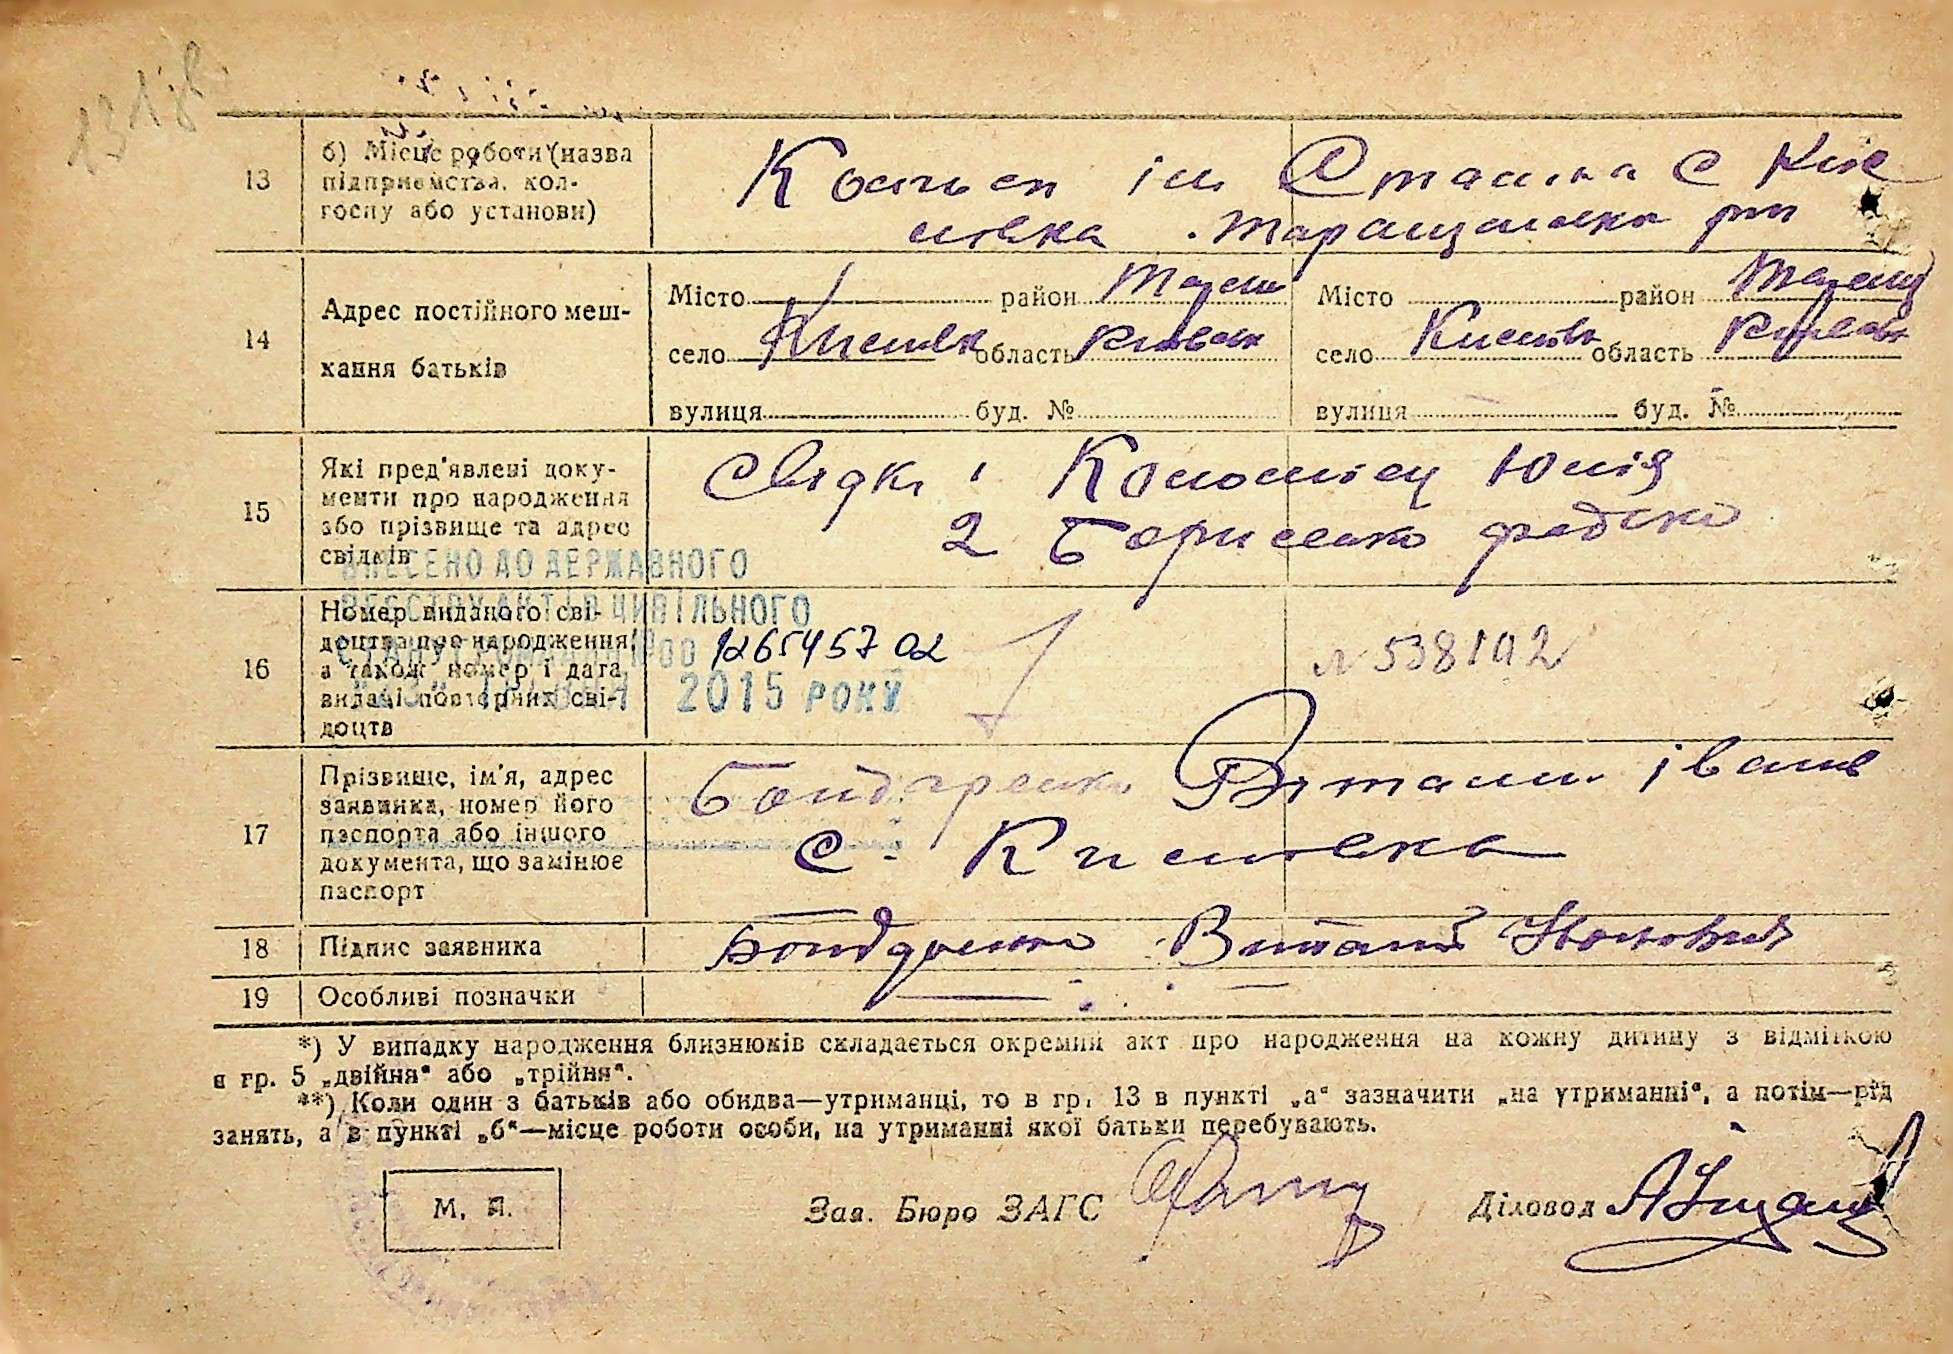 13
б) Місце роботи (назва
підприємства, кол-
госпу або установи)
Колгосп ім Сталіна с Кис
лівка Таращанського р-н
14
Адрес постійного меш-
кання батьків
Місто район Таращ
село Кислівк область Київськ
вулиця буд. №
Місто район Таращ
село Кислівк область Київськ
вулиця буд. №
15
Які пред'явлені доку-
менти про народження
або прізвище та адрес
свідків
Свідки 1 Коломієц Юлія
2 Борисенко
ВНЕСЕНО ДО ДЕРЖАВНОГО
РЕЄСТРУ АКТІВ ЦИВІЛЬНОГО
СТАНУ ГРОМАДЯН 00126545702
2015 РОКУ
16
Номер виданого сві-
доцтва про народження,
а також номер і дата
видачі повторних сві-
доцтв
№ 538192
17
Прізвище, ім'я, адрес
заявника, номер його
паспорта або іншого
документа, що замінює
паспорт
Бондаренко Віталій Іванов
с. Кислівка
18
Підпис заявника
Бондаренко Виталий Иванович
19
Особливі позначки
*) У випадку народження близнюків складається окремий акт про народження на кожну дитину з відміткою
в гр. 5 „двійня“ або „трійня“.
**) Коли один з батьків або обидва—утриманці, то в гр. 13 в пункті „а“ зазначити „на утриманні“, а потім—рід
занять, а в пункті „б“—місце роботи особи, на утриманні якої батьки перебувають.
М. П.
Зав. Бюро ЗАГС
Діловод